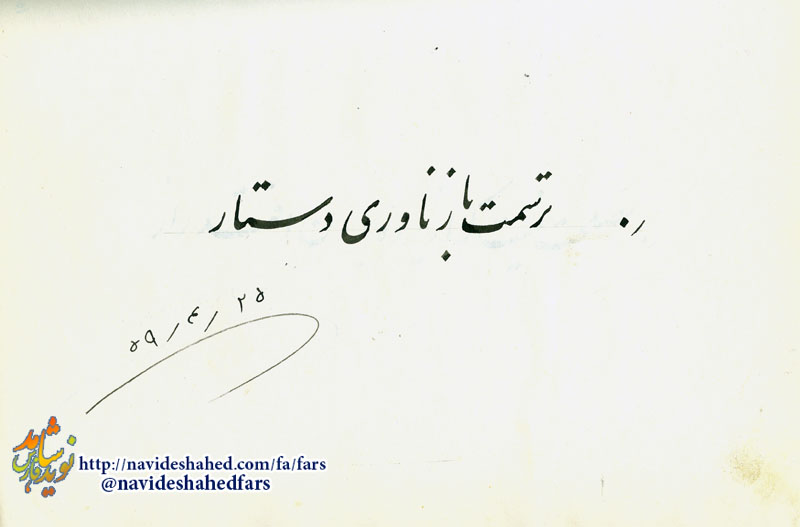 ترسمت باز ناوری دستار
۵۹/۴/۲۵
نوید شاهد فارس
http://navideshahed.com/fa/fars
@navideshahedfars